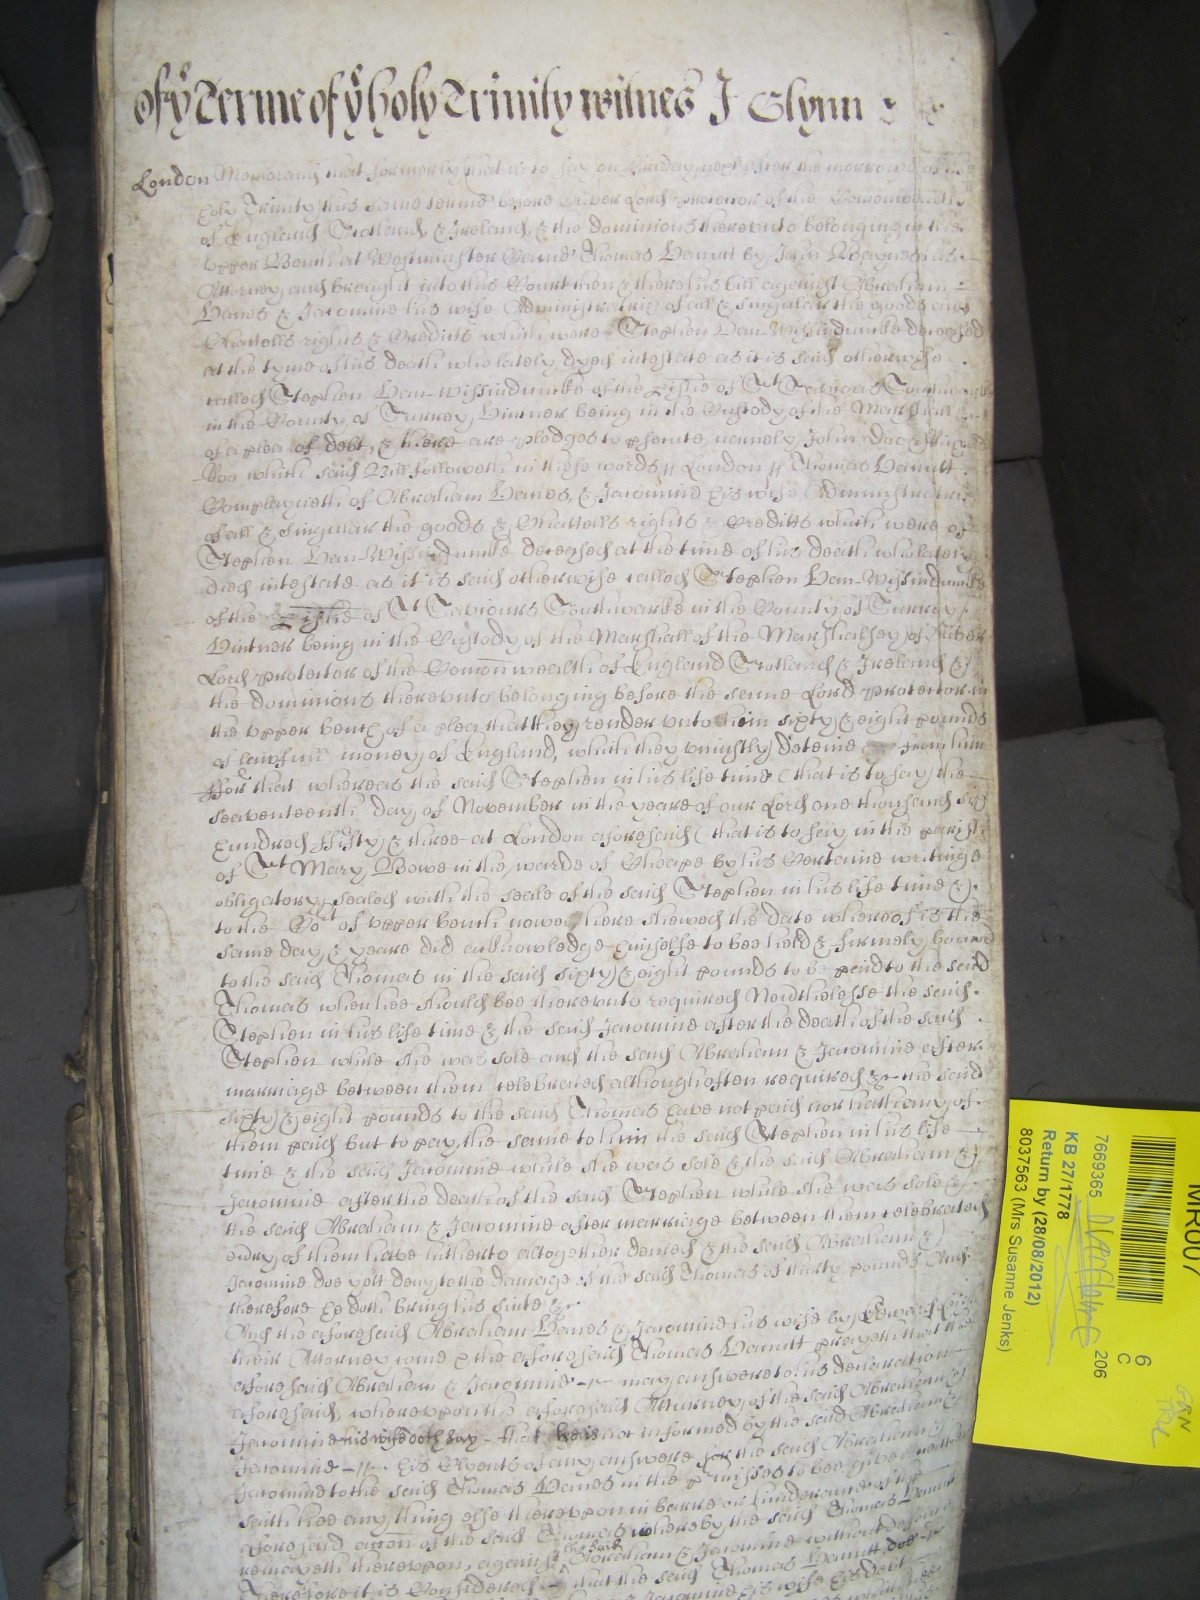 of yͤ Terme of yͤ holy Trinity witnes J Glynn
London Memorand that formerly that is to say on Friday next after the morrow of the
holy Trinity this same terme before Oliver Lord Protector of the Comonwealth
of England Scotland & Ireland & the dominions thereunto belonging in the
upper Bench at Westminster Came Thomas Hanutt by John his
Attorney and brought into this Court then & there his bill against Abraham
Hanes & Jacomine his wife Administratrix of all & singular the goods and
Chattells rights & Creditts which were Stephen Van-Wissindunke deceased
at the tyme of his death who lately dyed intestate as it is said otherwise
called Stephen Van-Wissindunke of the Pishe of St Saviours Southwarke
in the County of Surrey Vintner being in the Custody of the Marshall &c
of a plea of debt, & there are pledges to psecute, namely, John Doo & Richard
Roo which said Bill followeth in these words // London // Thomas Hanutt
Complayneth of Abraham Hanes, & Jacomine his wife Administratrix
of all & singular the goods & Chattells rights & Creditts which were of
Stephen Van-Wissindunke deceased at the time of his death who lately
died intestate as it is said otherwise called Stephen Van-Wissindunke
of the Pishe of St Saviours Southwarke in the County of Surrey
Vintner being in the Custody of the Marshall of the Marshalsey of Oliver
Lord Protector of the Comon wealth of England Scotland & Ireland &
the dominions thereunto belonging before the same Lord Protector in
the upper bench of a plea that they render unto him sixty & eight pounds
of lawfull money of England, which they uniustly deteine from him
ffor that whereas the said Stephen in his life time (that is to say) the
seaventeenth day of November in the yeare of our Lord one thousand six
hundred ffifty & three at London aforesaid (that is to say in the parish
of St Mary Bowe in the warde of Cheape by his Certaine writinge
obligatory sealed with the seale of the said Stephen in his life time &
to the Cort of upper bench nowe here shewed the date whereof is the
same day & yeare did acknowledge himselfe to bee held & firmely bound
to the said Thomas in the said sixty & eight pounds to be paid to the said
Thomas when hee should bee thereunto required Nevthelesse the said
Stephen in his life time & the said Jacomine after the death of the said
Stephen while she was sole and the said Abraham & Jacomine after
marriage between them celebrated although often required &c the said
sixty & eight pounds to the said Thomas have not paid nor hath any of
them paid but to pay the same to him the said Stephen in his life
time & the said Jacomine while she was sole & the said Abraham &
Jacomine after the death of the said Stephen while she was sole &
the said Abraham & Jacomine after marriage between them celebrated
evry of them have hitherto altogether denied & the said Abraham &
Jacomine doe yett deny to the damage of the said Thomas of thirty pounds And
therefore he doth bring his suite &c
And the aforesaid Abraham Hanes & Jacomine his wife by Edward
their Attorney come & the aforesaid Thomas Hanutt prayeth that the
aforesaid Abraham & Jacomine may answere to his declaration
aforesaid, whereupon the aforesaid Attorney of the said Abraham &
Jacomine his wife doth say that he is not informed by the said Abraham &
Jacomine his Clyents of any answere for the said Abraham &
Jacomine to the said Thomas Hanes in the pmisses to bee given
saith hee any thing else thereupon in barre or hinderance of the
aforesaid accon of the said Thomas whereby the said Thomas Hanutt
remayneth thereupon against the said Abraham & Jacomine without defence
Therefore it is Considered that the said Thomas Hanutt doe
& Jacomine his wife his debt
MR007
6
C
7669365
206
KB 27/1778
Return by (28/08/2012)
8037563 (Mrs Susanne Jenks)